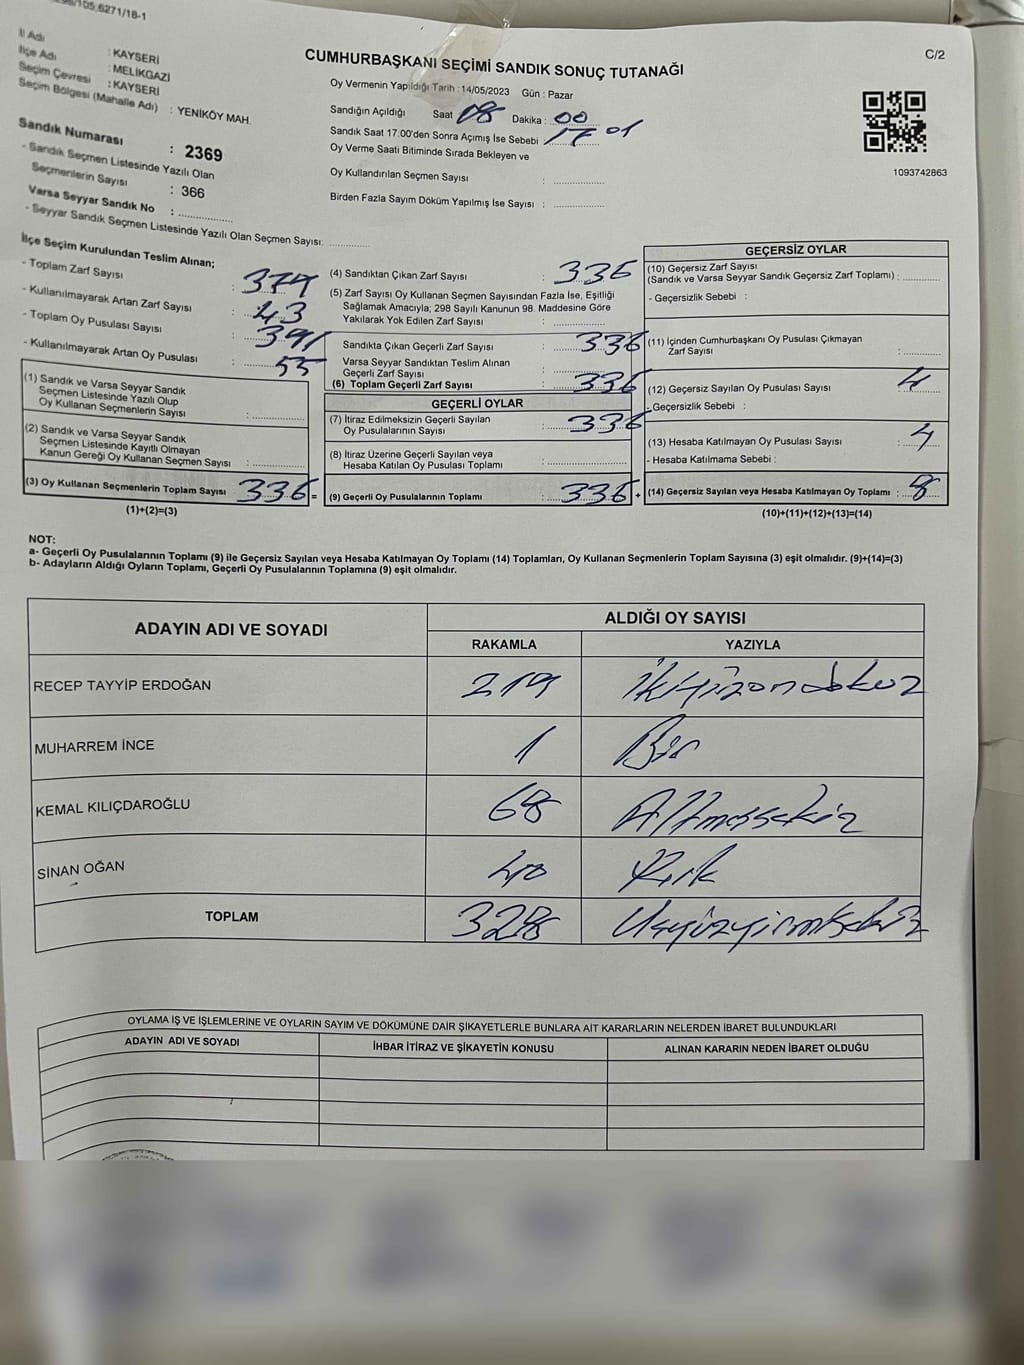 C/2
İl Adı : KAYSERİ
İlçe Adı : MELİKGAZİ
Seçim Çevresi : KAYSERİ
Seçim Bölgesi (Mahalle Adı) : YENİKÖY MAH.
Sandık Numarası : 2369
- Sandık Seçmen Listesinde Yazılı Olan
Seçmenlerin Sayısı : 366
Varsa Seyyar Sandık No :
- Seyyar Sandık Seçmen Listesinde Yazılı Olan Seçmen Sayısı:
CUMHURBAŞKANI SEÇİMİ SANDIK SONUÇ TUTANAĞI
Oy Vermenin Yapıldığı Tarih : 14/05/2023 Gün : Pazar
Sandığın Açıldığı Saat 08 Dakika : 00
Sandık Saat 17.00'den Sonra Açımış İse Sebebi 17 01
Oy Verme Saati Bitiminde Sırada Bekleyen ve
Oy Kullandırılan Seçmen Sayısı :
Birden Fazla Sayım Döküm Yapılmış İse Sayısı :
1093742863
İlçe Seçim Kurulundan Teslim Alınan;
- Toplam Zarf Sayısı :
- Kullanılmayarak Artan Zarf Sayısı : 43
- Toplam Oy Pusulası Sayısı : 391
- Kullanılmayarak Artan Oy Pusulası : 55
(1) Sandık ve Varsa Seyyar Sandık
Seçmen Listesinde Yazılı Olup
Oy Kullanan Seçmenlerin Sayısı :
(2) Sandık ve Varsa Seyyar Sandık
Seçmen Listesinde Kayıtlı Olmayan
Kanun Gereği Oy Kullanan Seçmen Sayısı :
(3) Oy Kullanan Seçmenlerin Toplam Sayısı 336 =
(1)+(2)=(3)
(4) Sandıktan Çıkan Zarf Sayısı : 336
(5) Zarf Sayısı Oy Kullanan Seçmen Sayısından Fazla İse, Eşitliği
Sağlamak Amacıyla; 298 Sayılı Kanunun 98. Maddesine Göre
Yakılarak Yok Edilen Zarf Sayısı :
Sandıkta Çıkan Geçerli Zarf Sayısı : 336
Varsa Seyyar Sandıktan Teslim Alınan
Geçerli Zarf Sayısı :
(6) Toplam Geçerli Zarf Sayısı : 336
GEÇERLİ OYLAR
(7) İtiraz Edilmeksizin Geçerli Sayılan
Oy Pusulalarının Sayısı : 336
(8) İtiraz Üzerine Geçerli Sayılan veya
Hesaba Katılan Oy Pusulası Toplamı :
(9) Geçerli Oy Pusulalarının Toplamı : 336 +
GEÇERSİZ OYLAR
(10) Geçersiz Zarf Sayısı
(Sandık ve Varsa Seyyar Sandık Geçersiz Zarf Toplamı) :
- Geçersizlik Sebebi :
(11) İçinden Cumhurbaşkanı Oy Pusulası Çıkmayan
Zarf Sayısı :
(12) Geçersiz Sayılan Oy Pusulası Sayısı : 4
- Geçersizlik Sebebi :
(13) Hesaba Katılmayan Oy Pusulası Sayısı : 4
- Hesaba Katılmama Sebebi :
(14) Geçersiz Sayılan veya Hesaba Katılmayan Oy Toplamı : 8
(10)+(11)+(12)+(13)=(14)
NOT:
a- Geçerli Oy Pusulalarının Toplamı (9) ile Geçersiz Sayılan veya Hesaba Katılmayan Oy Toplamı (14) Toplamları, Oy Kullanan Seçmenlerin Toplam Sayısına (3) eşit olmalıdır. (9)+(14)=(3)
b- Adayların Aldığı Oyların Toplamı, Geçerli Oy Pusulalarının Toplamına (9) eşit olmalıdır.
ADAYIN ADI VE SOYADI ALDIĞI OY SAYISI
RAKAMLA YAZIYLA
RECEP TAYYİP ERDOĞAN 219
MUHARREM İNCE 1 Bir
KEMAL KILIÇDAROĞLU 68 Altmışsekiz
SİNAN OĞAN 40 Kırk
TOPLAM 328 Üçyüzyirmisekiz
OYLAMA İŞ VE İŞLEMLERİNE VE OYLARIN SAYIM VE DÖKÜMÜNE DAİR ŞİKAYETLERLE BUNLARA AİT KARARLARIN NELERDEN İBARET BULUNDUKLARI
ADAYIN ADI VE SOYADI İHBAR İTİRAZ VE ŞİKAYETİN KONUSU ALINAN KARARIN NEDEN İBARET OLDUĞU